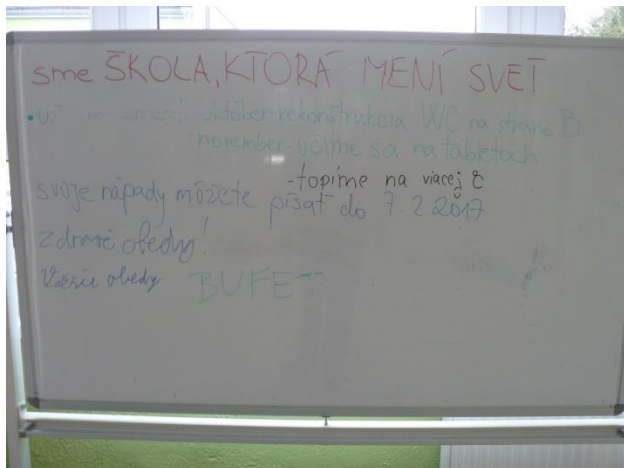 sme ŠKOLA, KTORÁ MENÍ SVET
• už október-rekonštrukcia WC na strane B
november-učíme sa na tabletoch
-topíme na viacej č
svoje nápady môžete písať do 7.2.2017
Zdravé obedy!
obedy BUFET